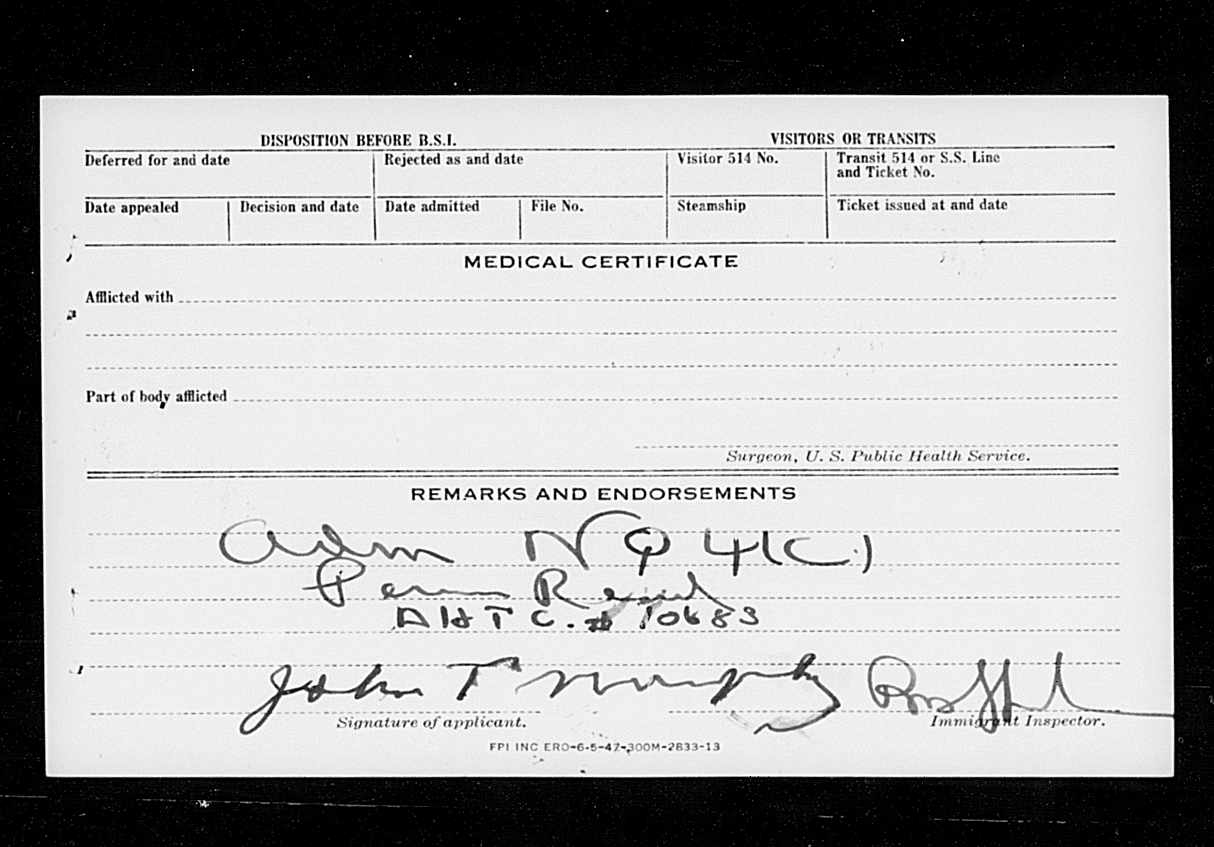 DISPOSITION BEFORE B.S.I. VISITORS OR TRANSITS
Deferred for and date Rejected as and date Visitor 514 No. Transit 514 or S.S. Line
and Ticket No.
Date appealed Decision and date Date admitted File No. Steamship Ticket issued at and date
MEDICAL CERTIFICATE
Afflicted with
Part of body afflicted
Surgeon, U. S. Public Health Service.
REMARKS AND ENDORSEMENTS
Adm NQ 4(C)
Perm Resid
AHTC. # 10683
John T Murphy
Signature of applicant. Immigrant Inspector.
FPI INC ERO-6-5-47-300M-2833-13